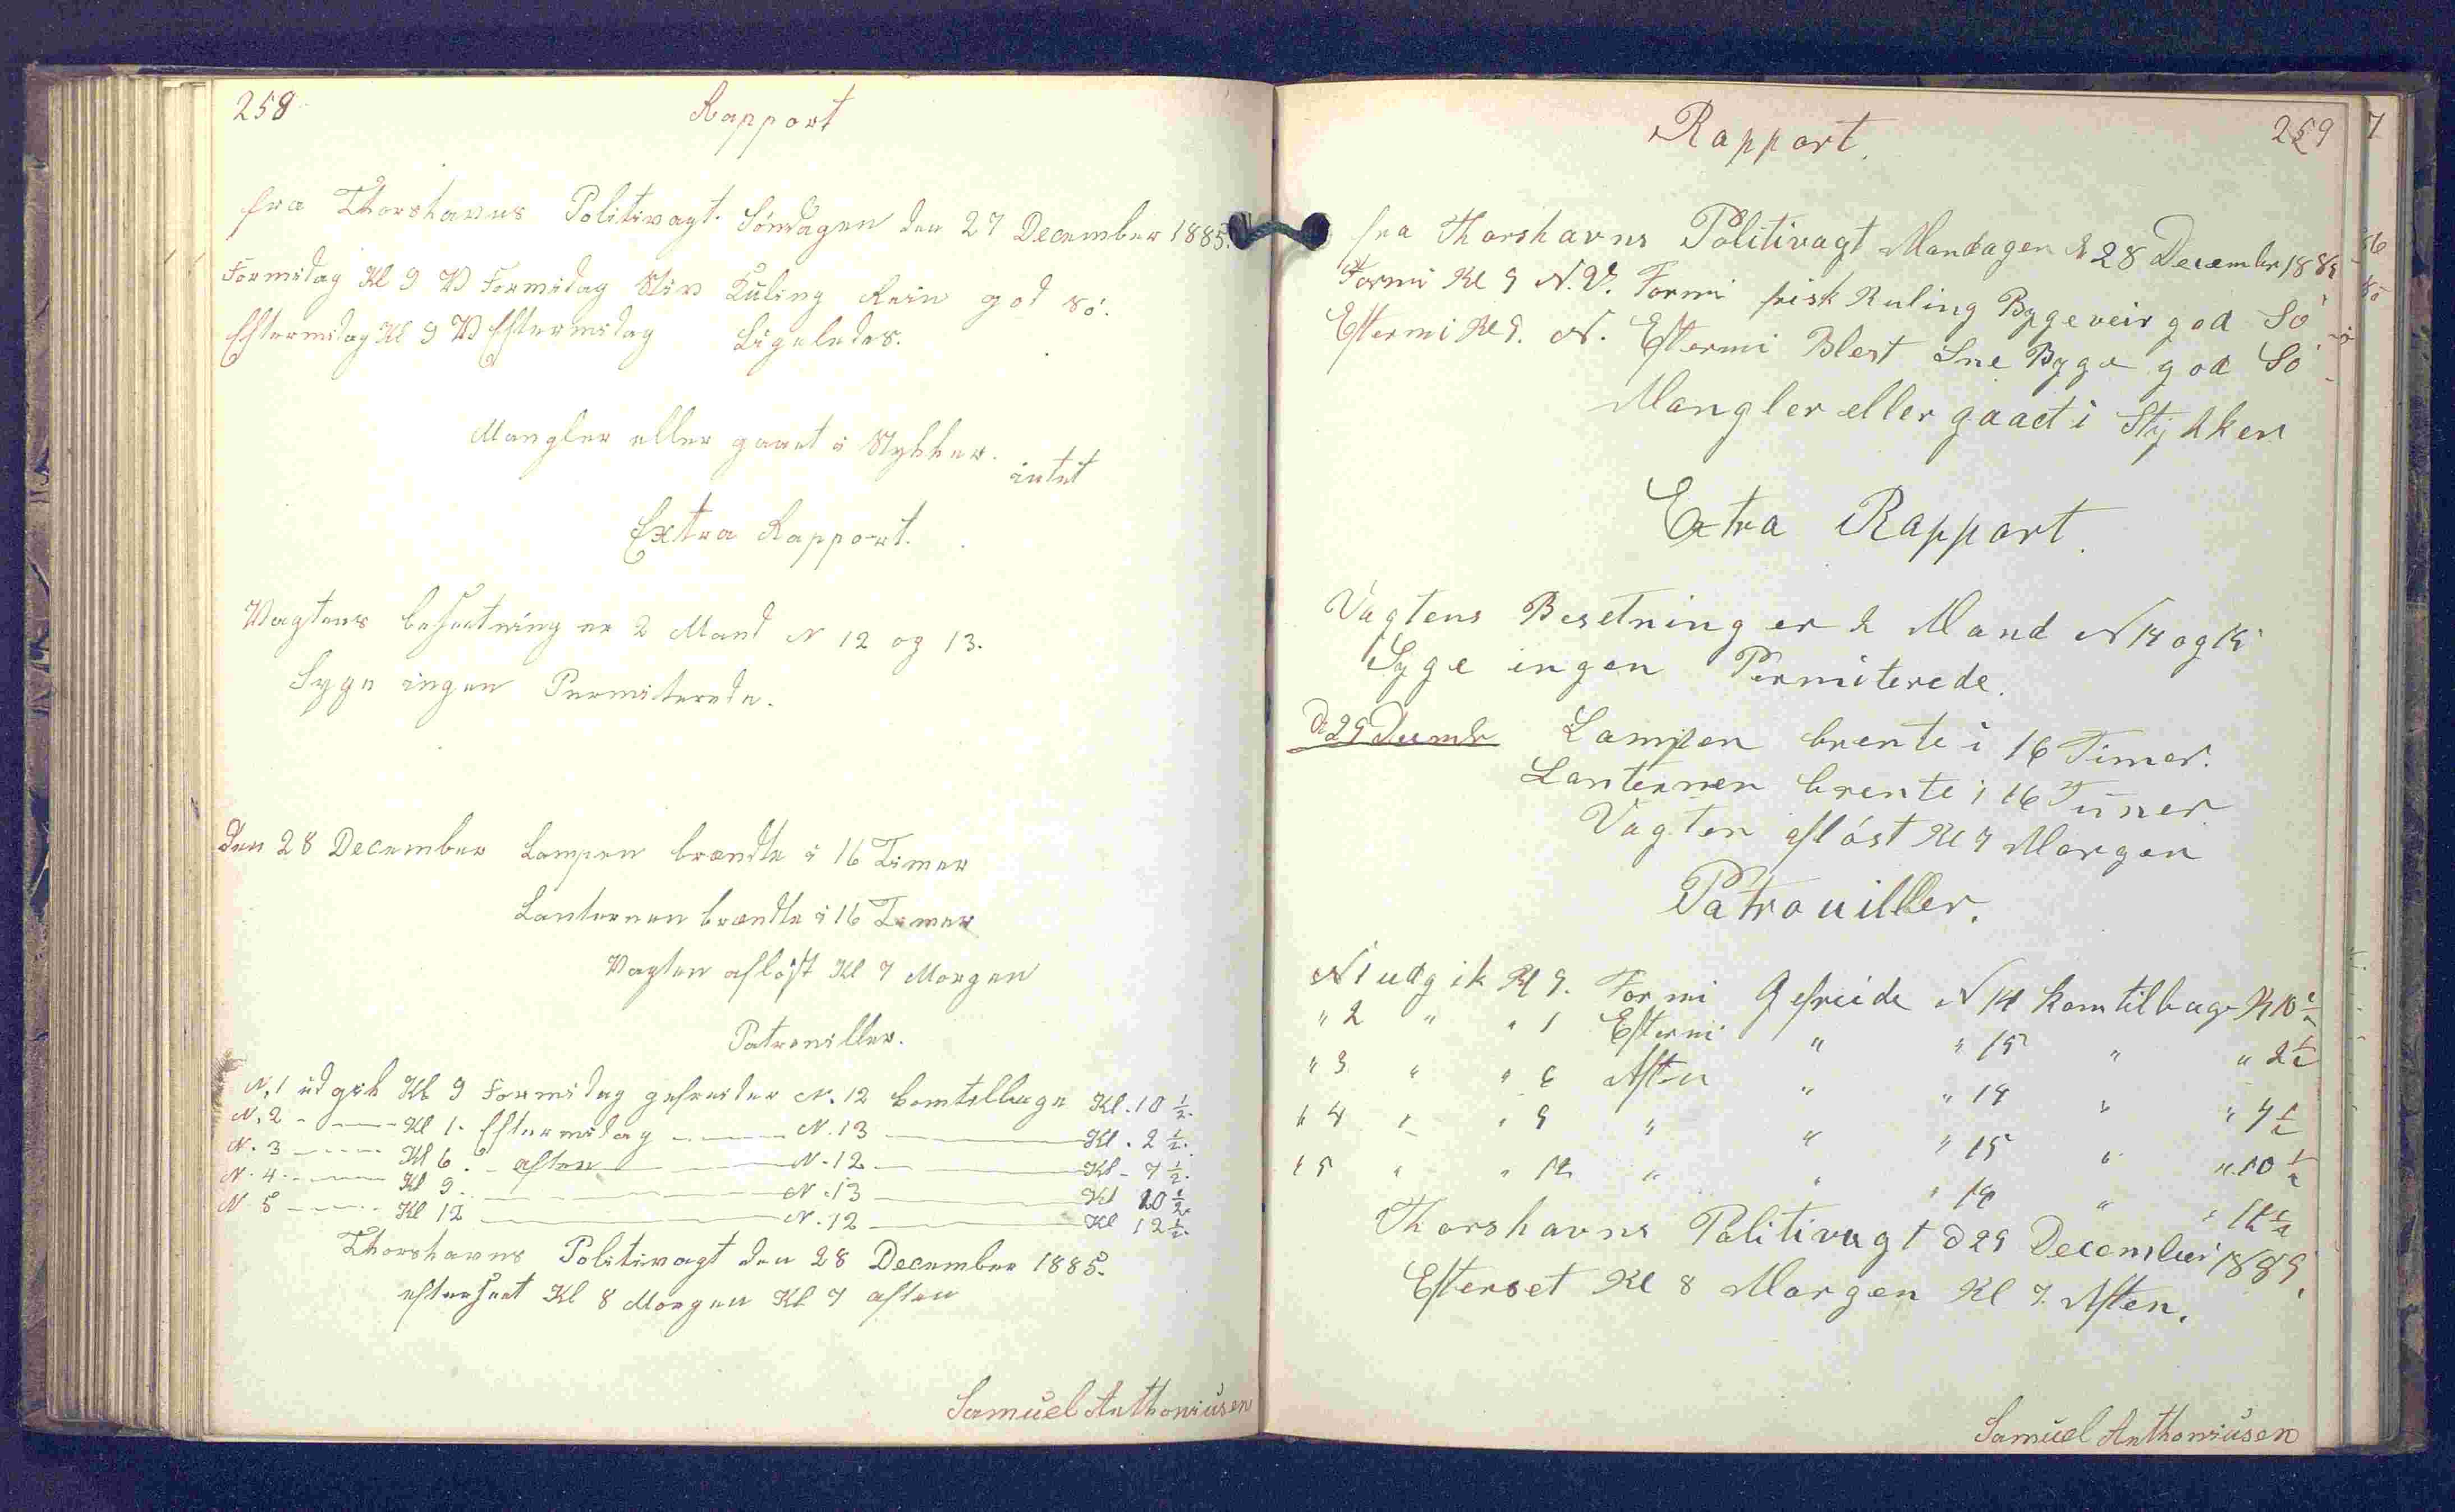 258
Rapport
fra Thorshavns Politivagt. Søndagen den 27 December 1885.
Formidag Kl 9 V Formidag Stiv Kuling Rein god Sö.
Eftermidag Kl 9 V Eftermidag Ligeledes.
Mangler eller gaaet i Stykker.
intet
Extra Rapport.
Vagtens besætning er 2 Mand N 12 og 13.
Syge ingen Permiterede.
den 28 December Lampen brændte i 16 Timer
Lanternen brændte i 16 Timer
Vagten afløst Kl 7 Morgen
Patrouiller.
N. 1 udgik Kl 9 Formidag gefreider N. 12 komtilbage Kl. 10 1/2.
N. 2 - — Kl 1. Eftermidag — N. 13 — Kl. 2 1/2.
N. 3 — Kl 6. - aften — N. 12 — Kl - 7 1/2.
N. 4 — Kl 9 — N. 13 — Kl 10 1/2
N 5 — Kl 12 — N. 12 — Kl 12 1/2.
Thorshavns Politivagt den 28 December 1885.
efterseet Kl 8 Morgen Kl 7 aften
Samuel Anthoniusen
Rapport.
259
fra Thorshavns Politivagt Mandagen d 28 December 1885
Formi Kl 9 N.V. Formi frisk Kuling Bygeveir god Sö
Eftermi Kl 9. N. Eftermi Blest Sne Byge god Sö
Mangler eller gaaet i Stykker
Extra Rapport.
Vagtens Besetning er 2 Mand N 14 og 15
Syge ingen Permiterede.
D 29 Decembr Lampen brente i 16 Timer.
Lanternen brente i 16 Timer
Vagten afløst Kl 7 Morgen
Patrouiller.
N 1 udgik Kl 9. Formi Gefreide N 14 kom tilbage Kl 10 1/2
" 2 " " 1 Eftermi " " 15 " " 2 1/2
" 3 " " 6 Aften " " 14 " " 7 1/2
" 4 " " 9 " " " 15 " " 10 1/2
" 5 " " 12 " " " 14 " " 12 1/2
Thorshavns Politivagt d 29 December 1885.
Efterset Kl 8 Morgen Kl 7. Aften.
Samuel Anthoniusen